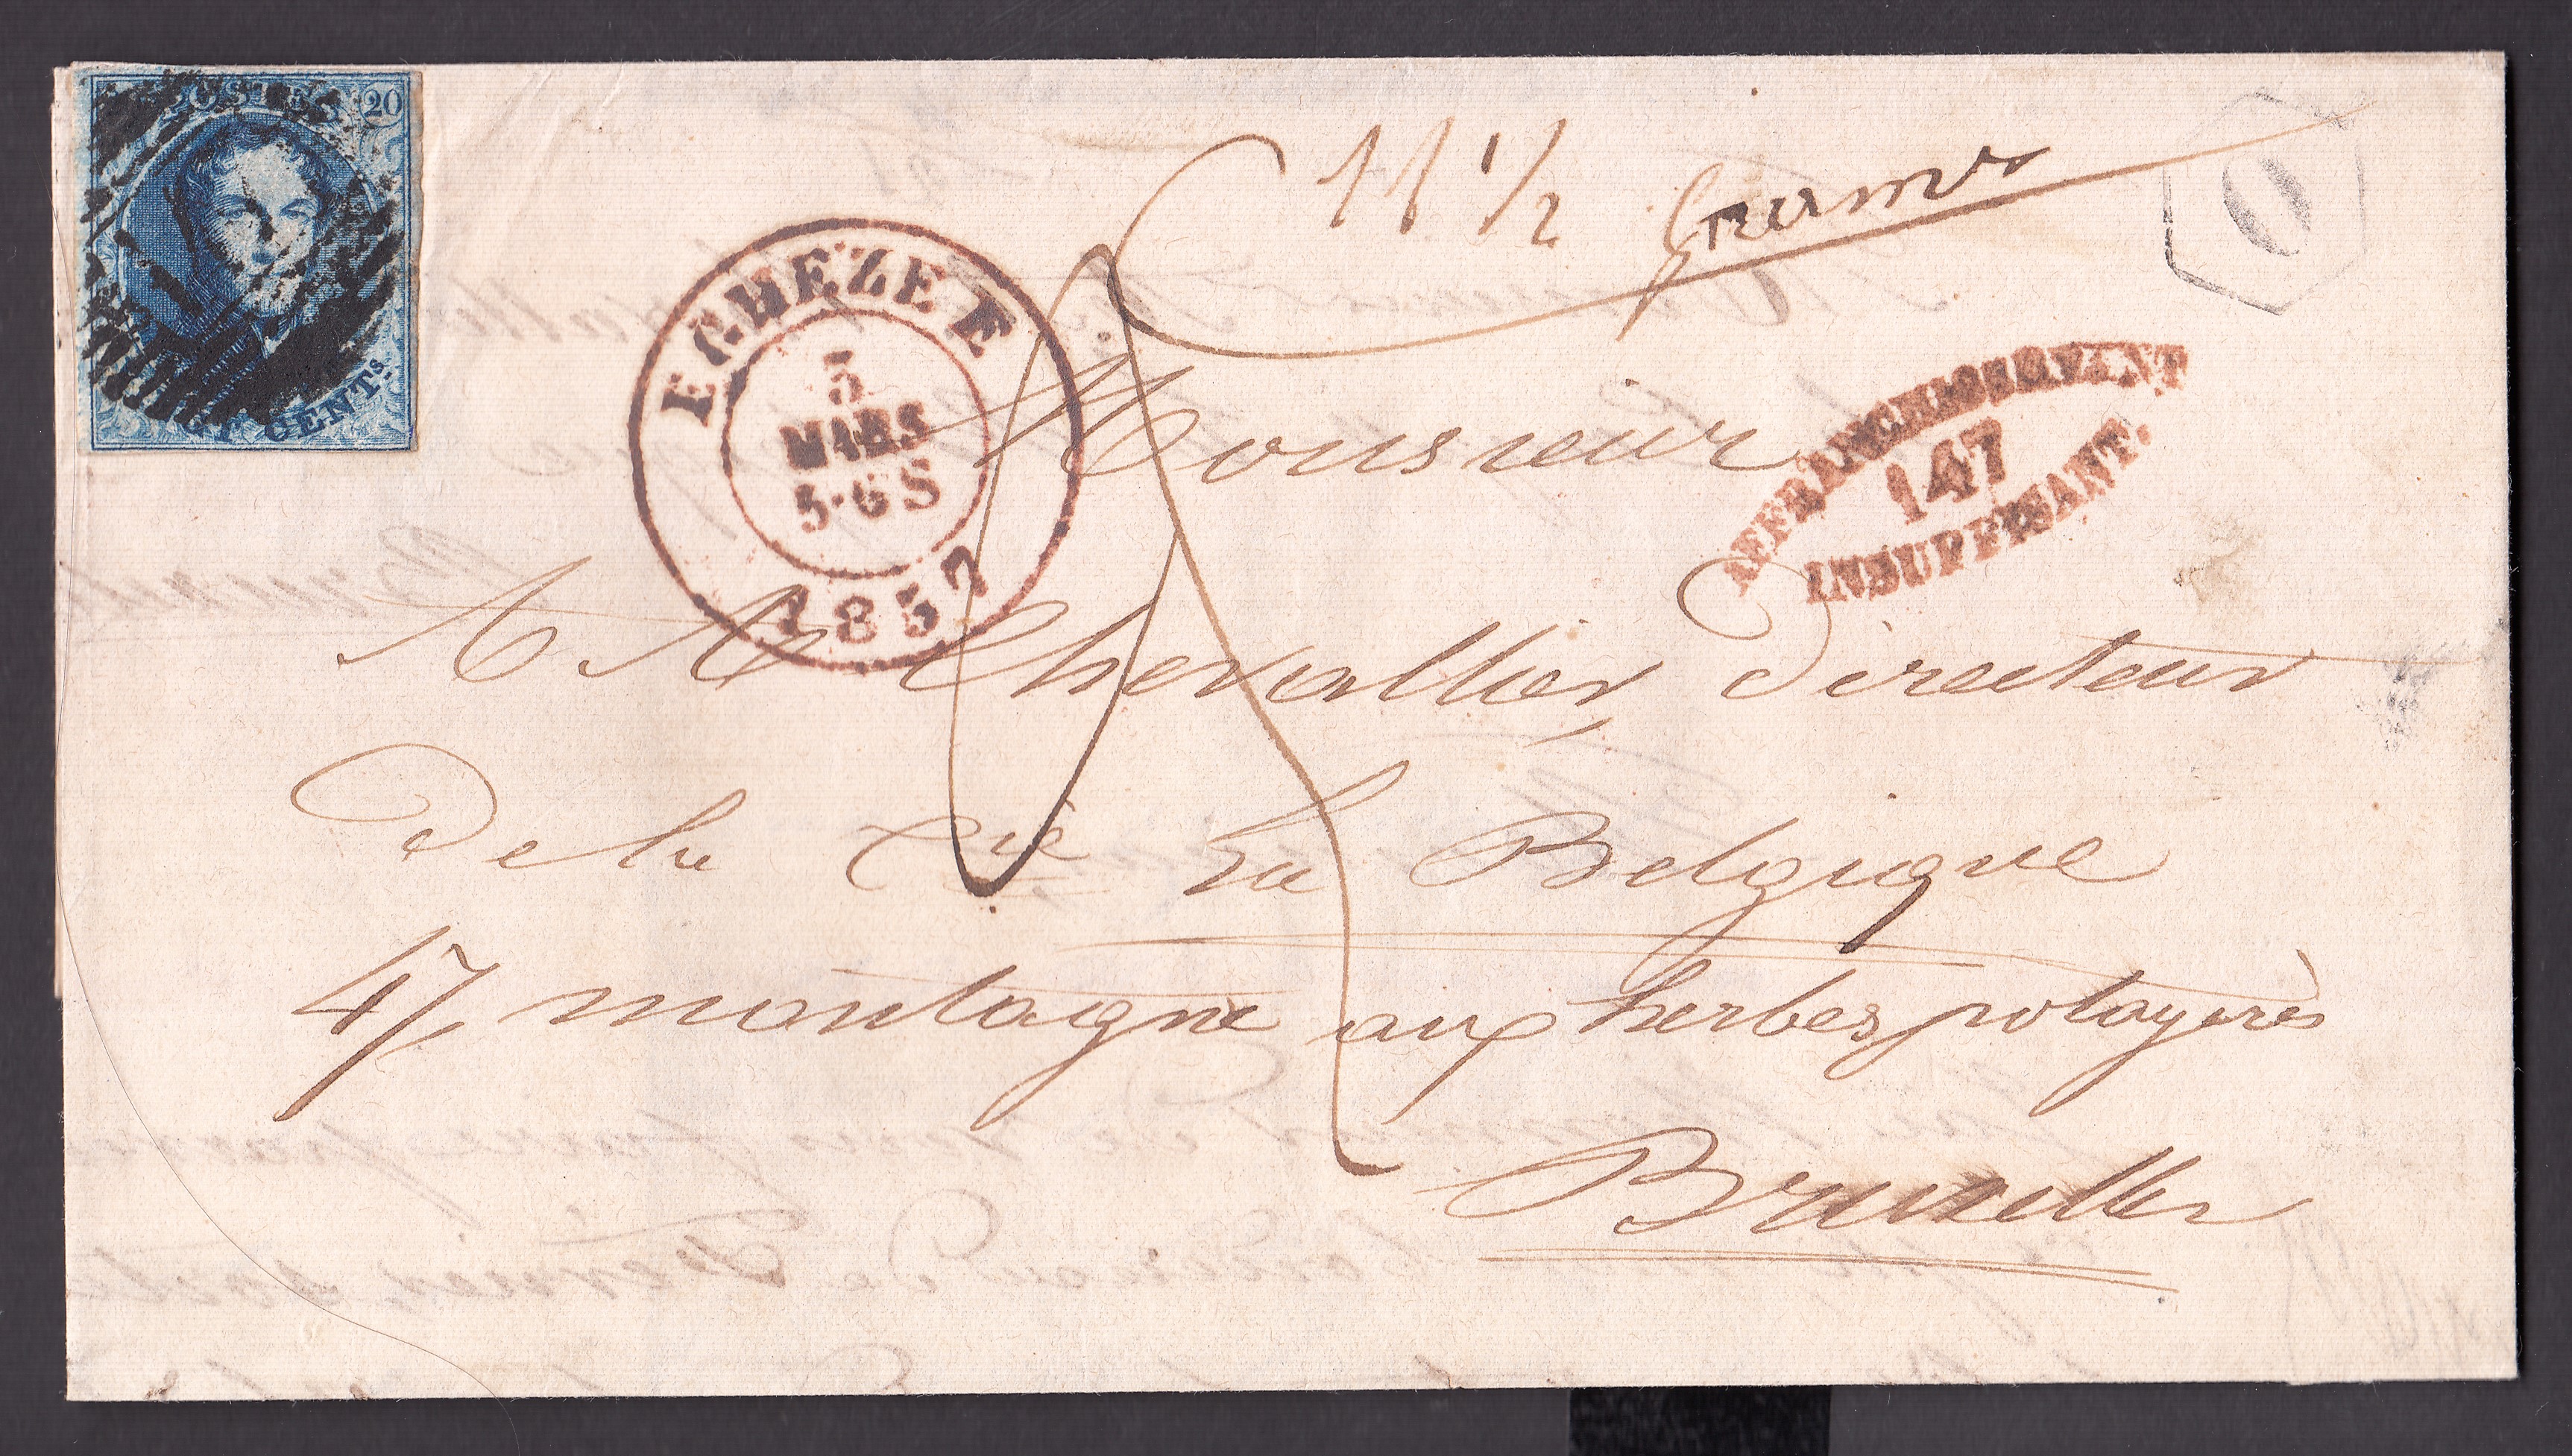 POSTES 20
VINGT CENTS.
11 1/2 gram
O
EGHEZEE
5
MARS
5-6 S
1857
AFFRANCHISSEMENT
147
INSUFFISANT.
Monsieur
A Chevallier, Directeur
De la Cie La Belgique
47 montagne aux herbes potagerès
Bruxelles